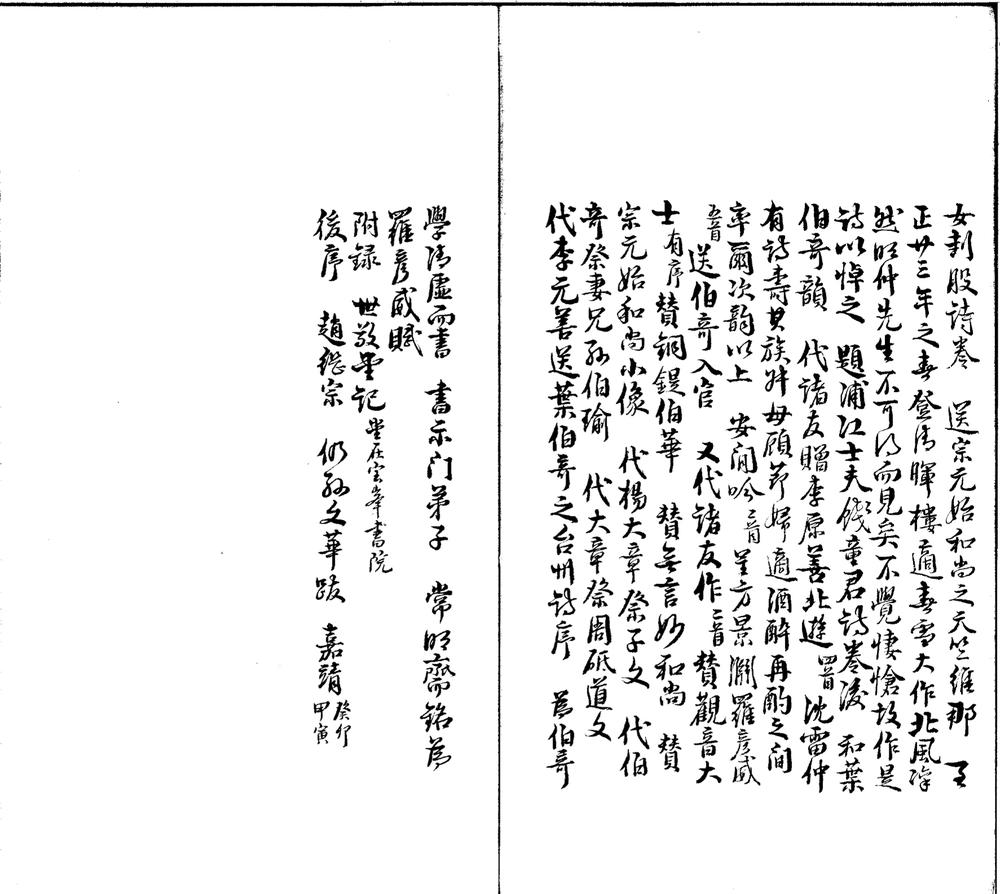 女刲股詩卷　送宗元始和尚之天竺維那　王
正廿三年之春登清暉樓適春雪大作北風凄
然明仲先生不可得而見矣不覺悽愴故作是
詩以悼之　題浦江士夫餞童君詩卷後　和葉
伯奇韻　代諸友贈李原善北遊四首　沈雷仲
有詩壽其族姊母顧節婦適酒醉再酌之間
率爾次韵以上　安閒吟二首　呈方景淵羅彥威
五首　送伯奇入官　又代諸友作二首　贊觀音大
士有序　贊銅鍉伯華　贊無言妙和尚　贊
宗元始和尚小像　代楊大章祭子文　代伯
奇祭妻兄孫伯瑜　代大章祭周砥道文
代李元善送葉伯奇之台州詩序　為伯奇
學清虛而書　書示门弟子　常明齋銘為
羅彥威賦
附錄　世敬堂記堂在雲峯書院
後序　趙繼宗　仍孫文華跋　嘉靖癸卯甲寅